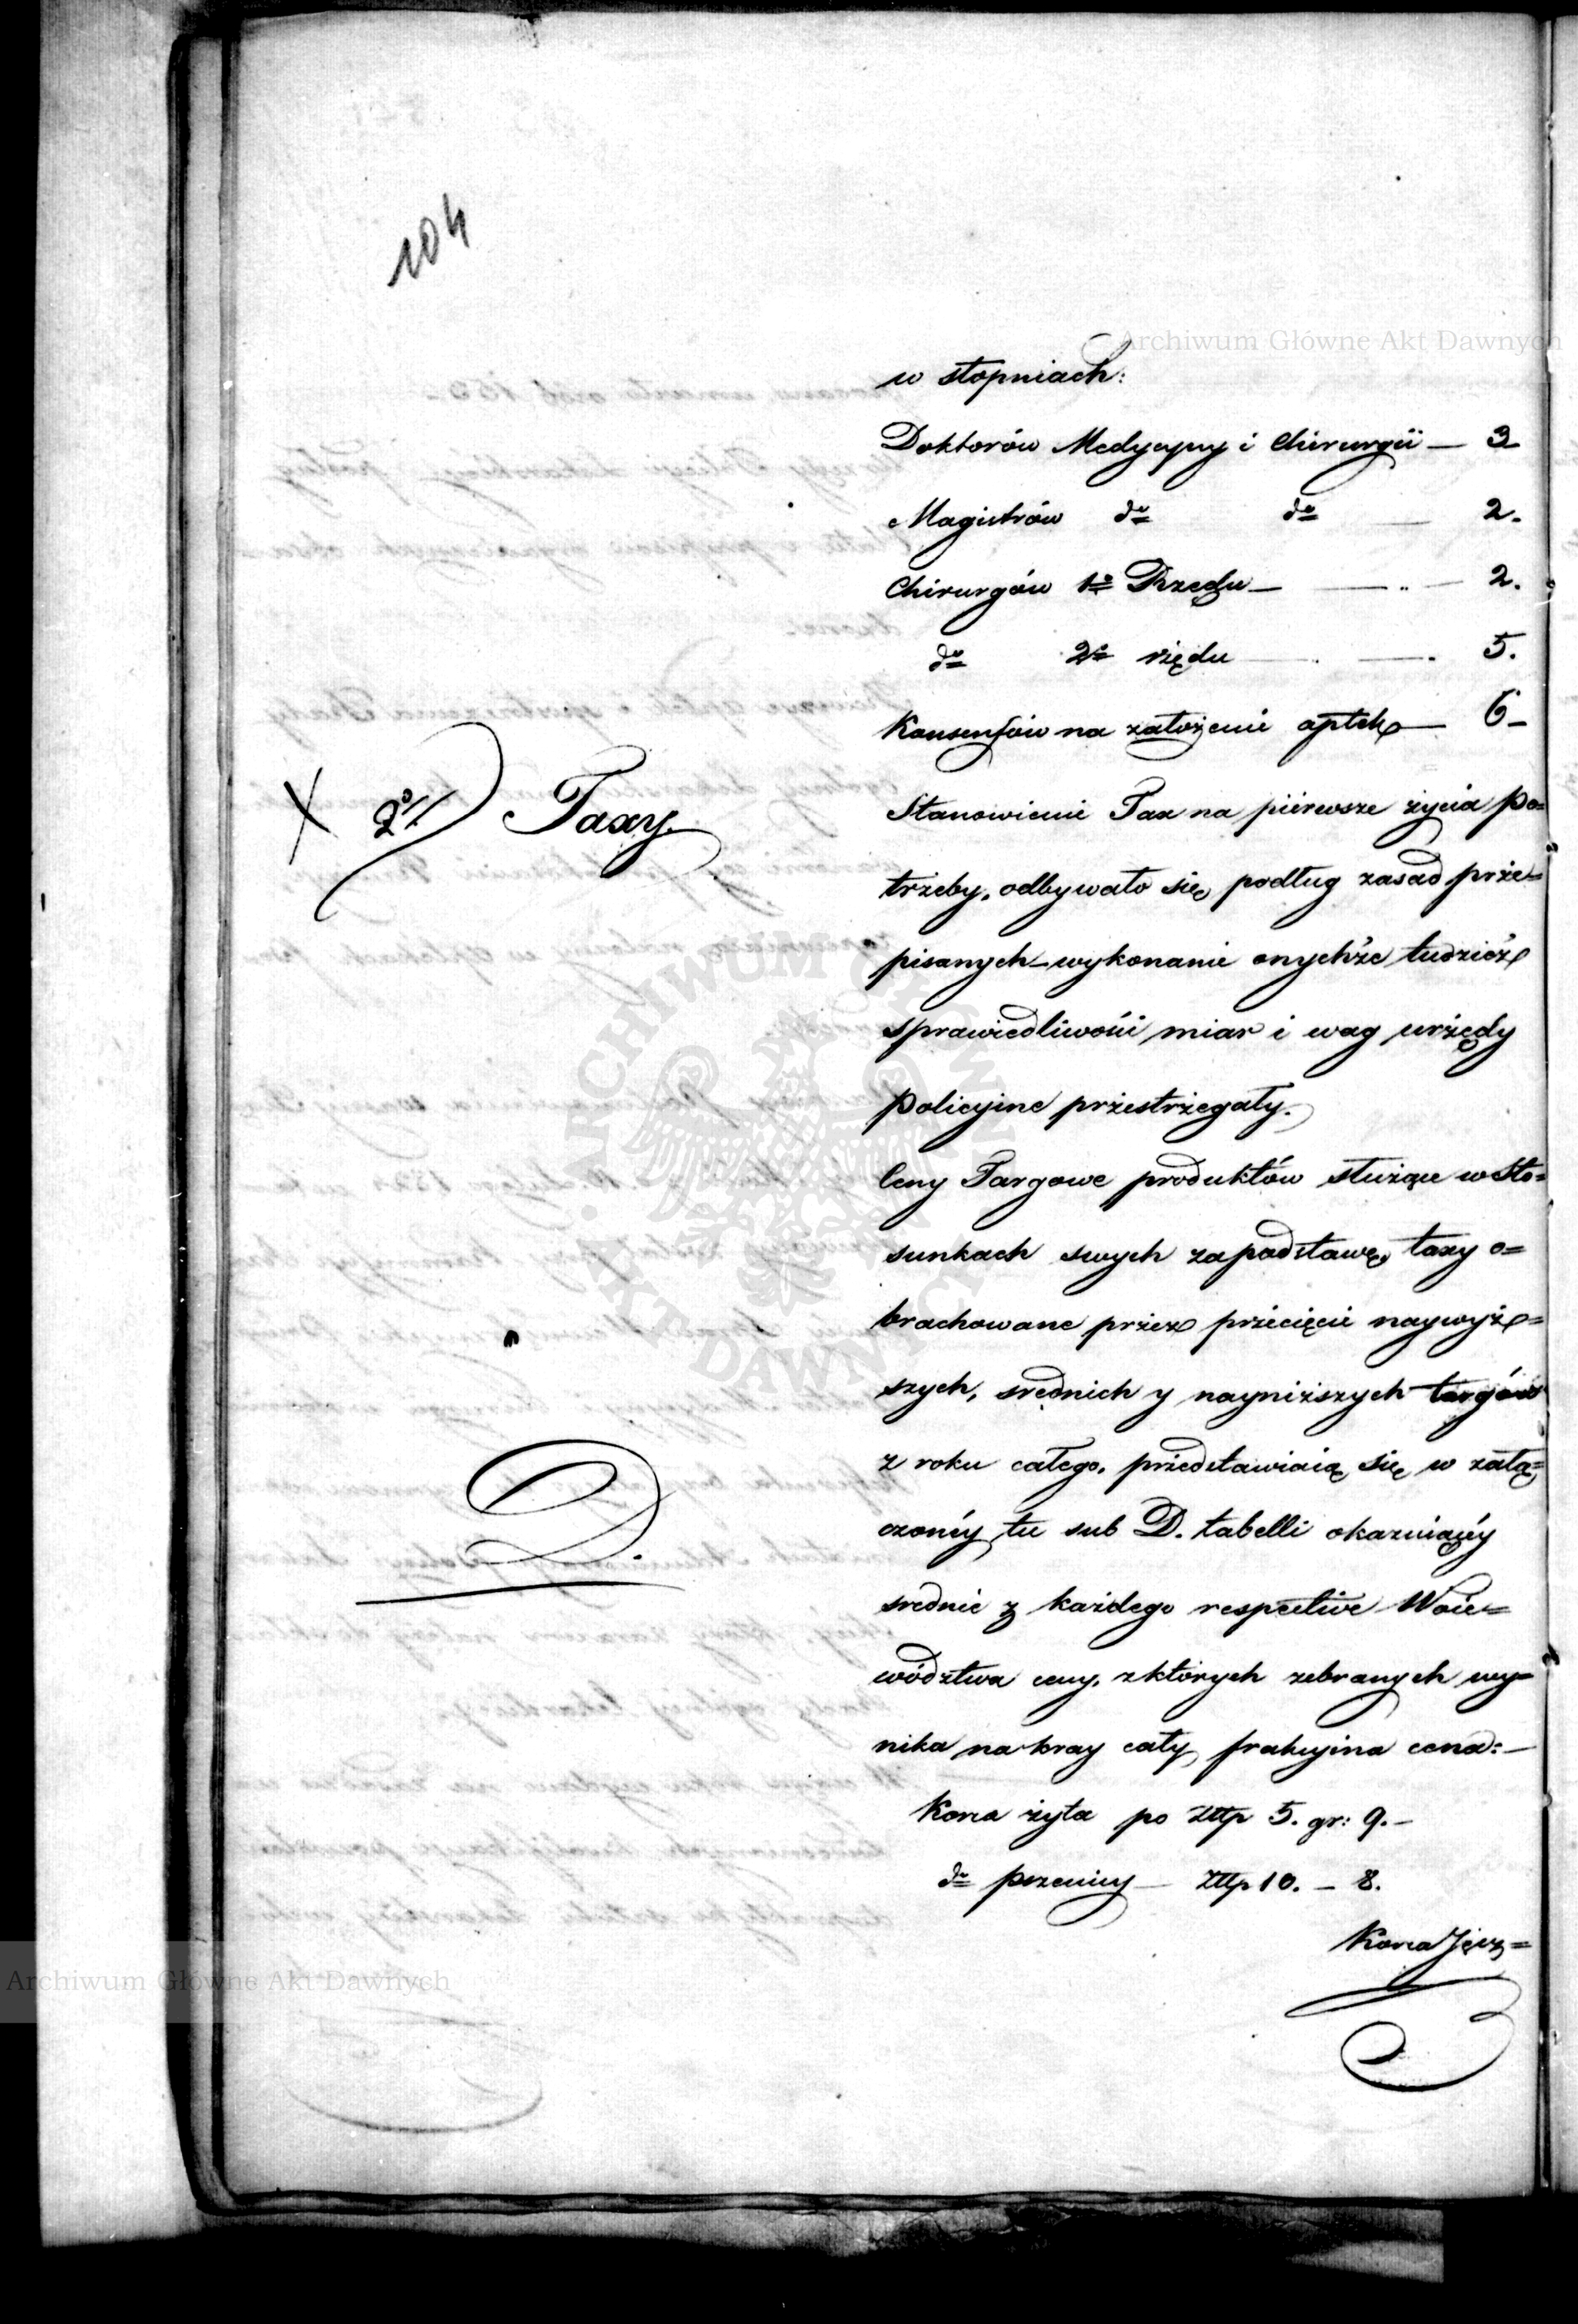 104
Archiwum Główne Akt Dawnych
w stopniach:
Doktorów Medycyny i Chirurgii — 3
Magistrów do do — 2.
Chirurgów 1o Rzędu — 2.
do 2o rzędu — 5.
Konsensów na założenie aptek — 6 –
X 2o/ Taxy.
Stanowienie Tax na pierwsze życia po=
trzeby, odbywało się podług zasad prze=
pisanych – wykonanie onychże tudzież
sprawiedliwości miar i wag urzędy
Policyine przestrzegały.
Ceny Targowe produktów służące w sto=
sunkach swych za podstawę taxy o=
brachowane przez przecięcie naywyż=
szych, srednich y nayniższych targów
z roku całego, przedstawiaią się w załą=
D.
czonéy tu sub D. tabelli okazuiącéy
srednie z każdego respective Woie=
wództwa ceny, z których zebranych wy=
nika na kray cały frakcyina cena: –
Korca żyta po Złtp 5. gr: 9. –
do pszenicy — Złtp 10. – 8.
Korca Jęcz=
Archiwum Główne Akt Dawnych
ARCHIWUM GŁÓWNE AKT DAWNYCH